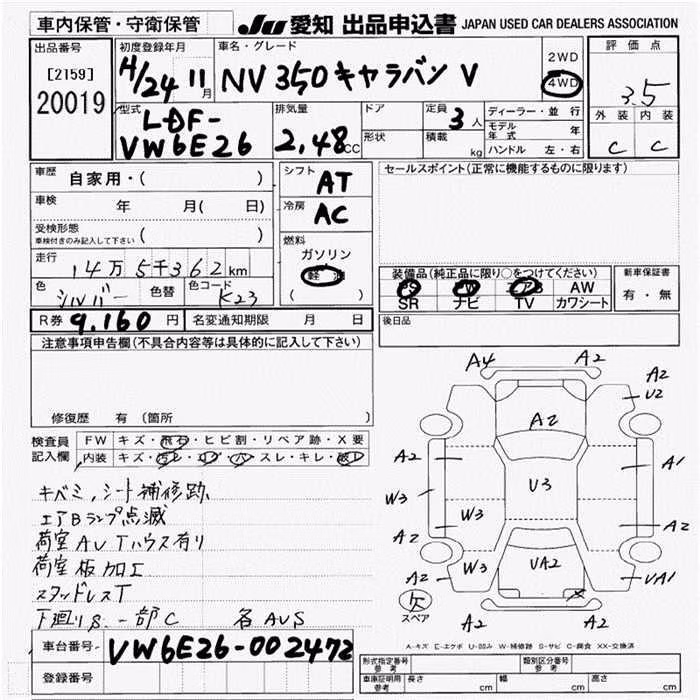 車内保管・守衛保管
JU 愛知 出品申込書 JAPAN USED CAR DEALERS ASSOCIATION
出品番号
[2159]
20019
初度登録年月
H/24 11月
車名・グレード
NV350キャラバン V
2WD
4WD
評価点
3.5
外装 内装
C C
型式
LDF-
VW6E26
排気量
2.48cc
ドア
形状
定員 3人
積載 kg
ディーラー・並行
モデル年式 年
ハンドル 左・右
車歴 自家用・( )
車検 年 月( 日)
受検形態
車検付きのみ記入して下さい ( )
走行 14万5千362km
色 シルバー 色替 色コード K23
シフト AT
冷房 AC
燃料
ガソリン
軽油
( )
セールスポイント(正常に機能するものに限ります)
装備品(純正品に限り○をつけてください)
PS PW エアB AW
SR ナビ TV カワシート
新車保証書
有・無
R券 9.160円 名変通知期限 月 日
後日品
注意事項申告欄(不具合内容等は具体的に記入して下さい)
修復歴 有 (箇所
検査員
記入欄
FW キズ・飛石・ヒビ割・リペア跡・X要
内装 キズ・汚レ・コゲ・ハ・スレ・キレ・破レ
キバミ,シート補修跡
エアBランプ点滅
荷室AUTハウス有り
荷室板加工
スタッドレスT
下廻りS.一部C 各AUS
A4 A2
A2
U2
A2
A2 A1
U3
W3
W3
A2 A2
W3 UA2
A2 UA1
X
欠
スペア
A2
A-キズ E-エクボ U-凹み W-補修跡 S-サビ C-腐食 XX-交換済
車台番号 VW6E26-002472
登録番号
形式指定番号
参考
類別区分番号
参考
車庫証明用
参考
長さ cm 幅 cm 高さ cm